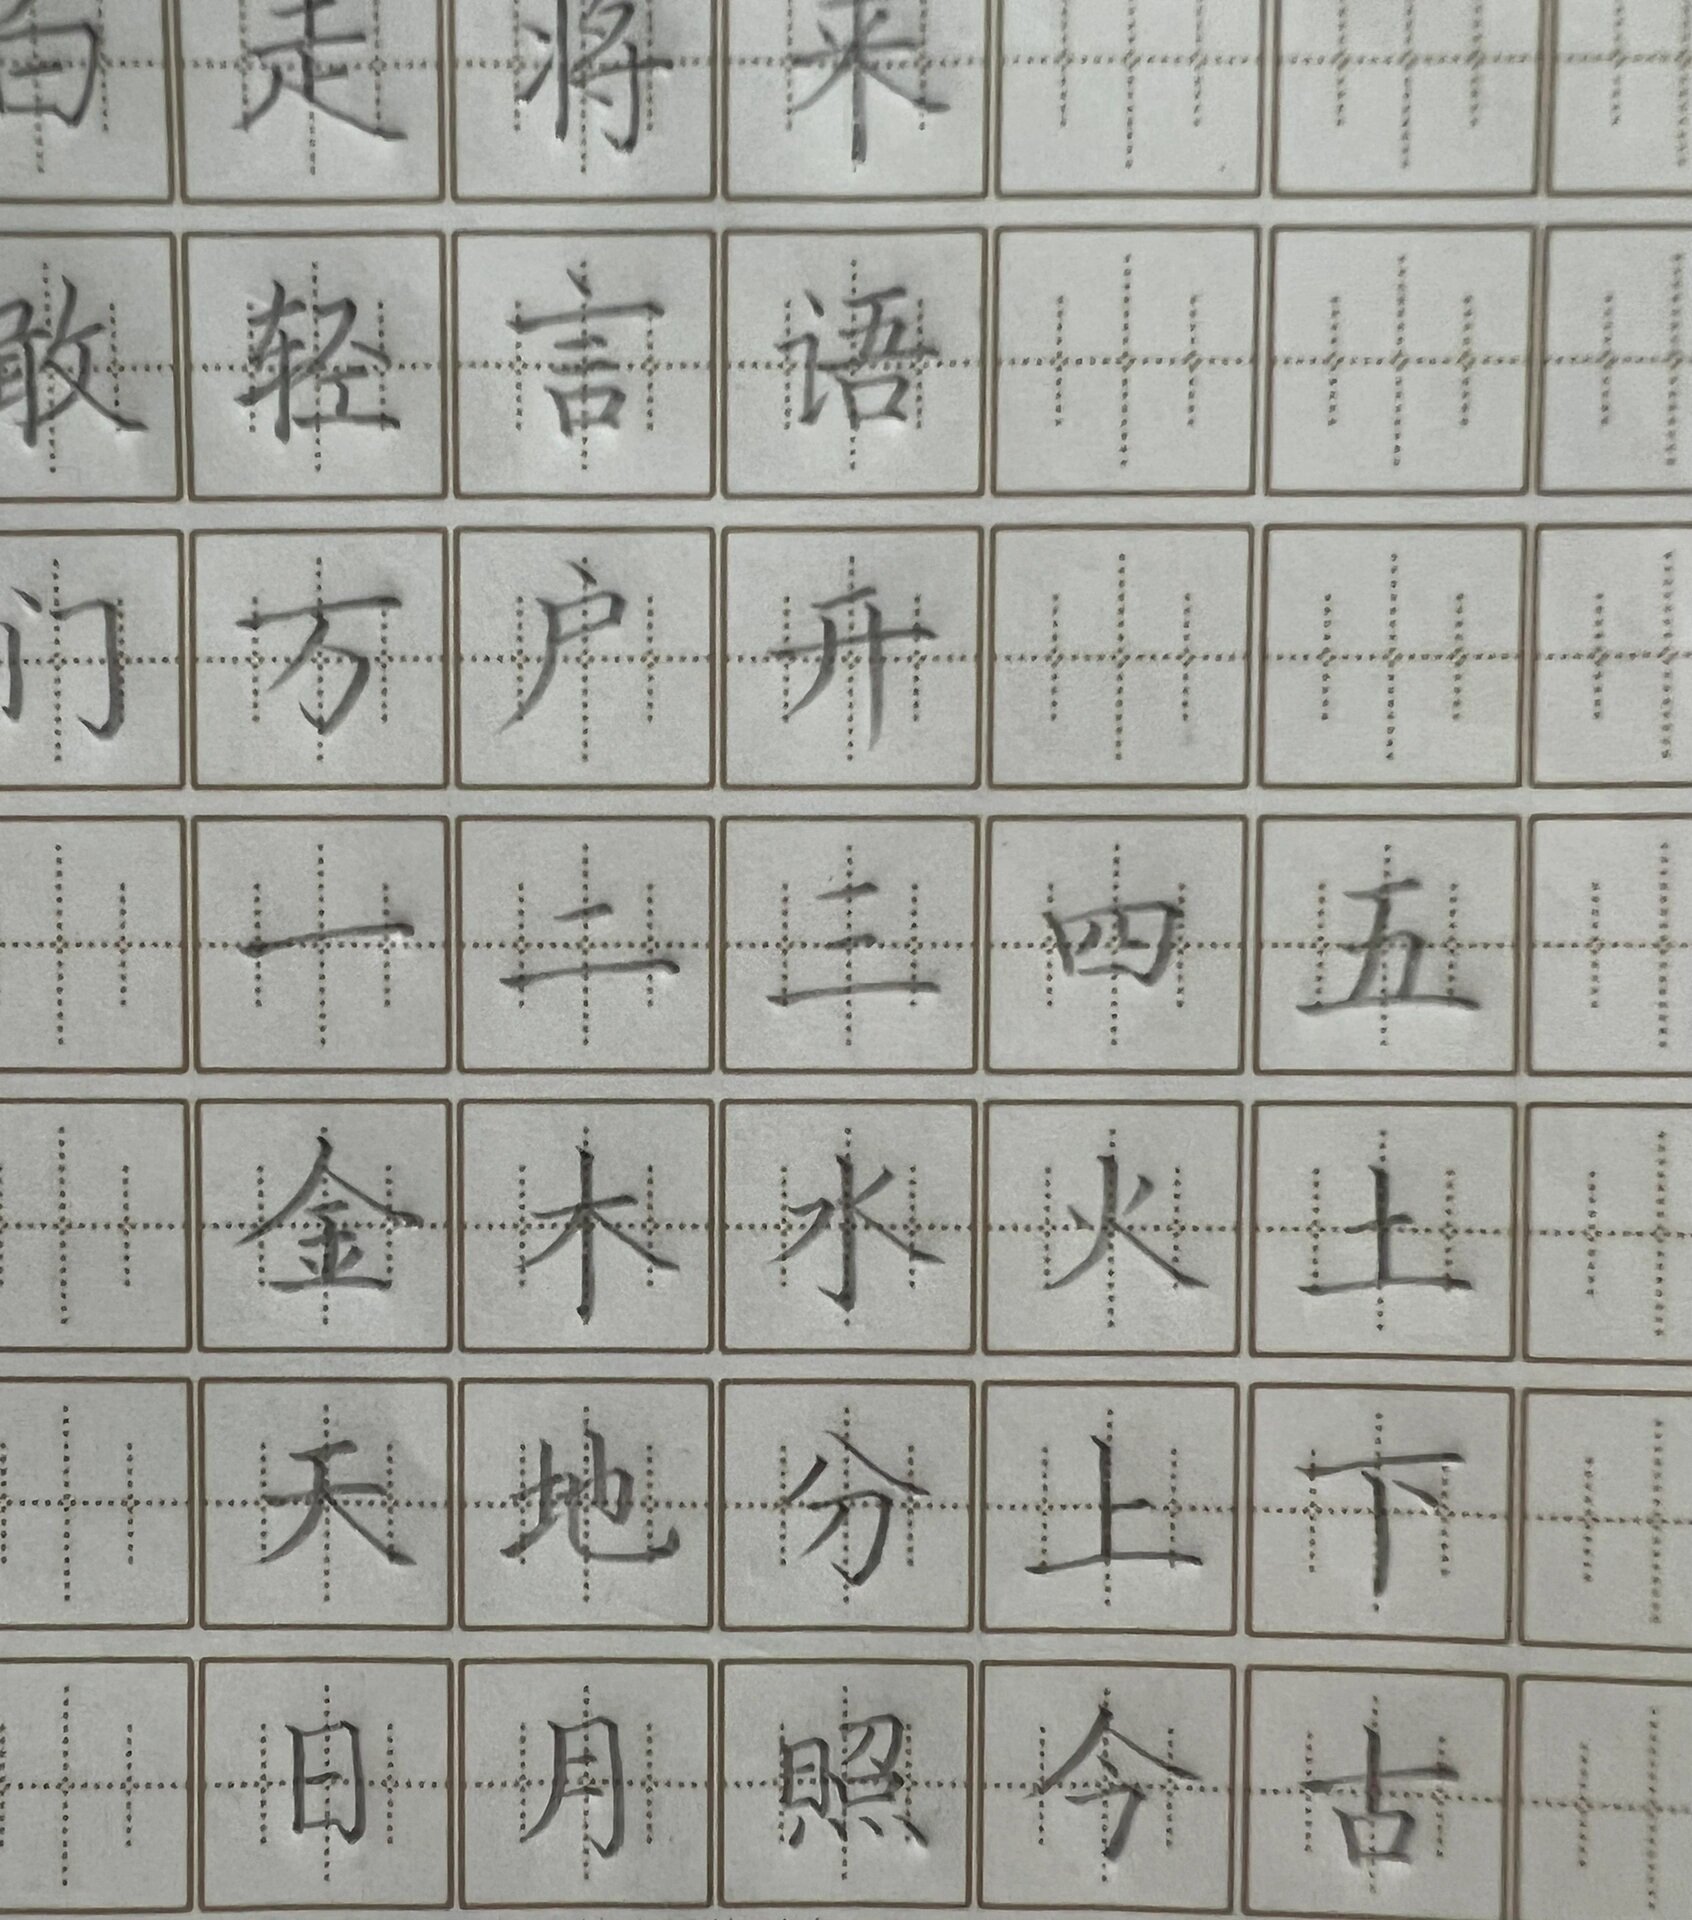 走将来
敢轻言语
门万户开
一二三四五
金木水火土
天地分上下
日月照今古